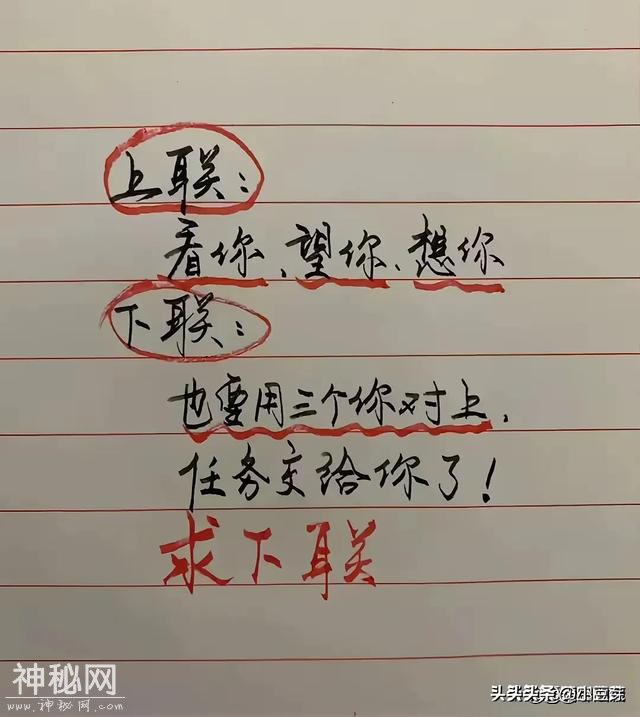 上联：
看你、望你、想你
下联：
也要用三个你对上，
任务交给你了！
求下联
神秘网
www.shenmiwang.com